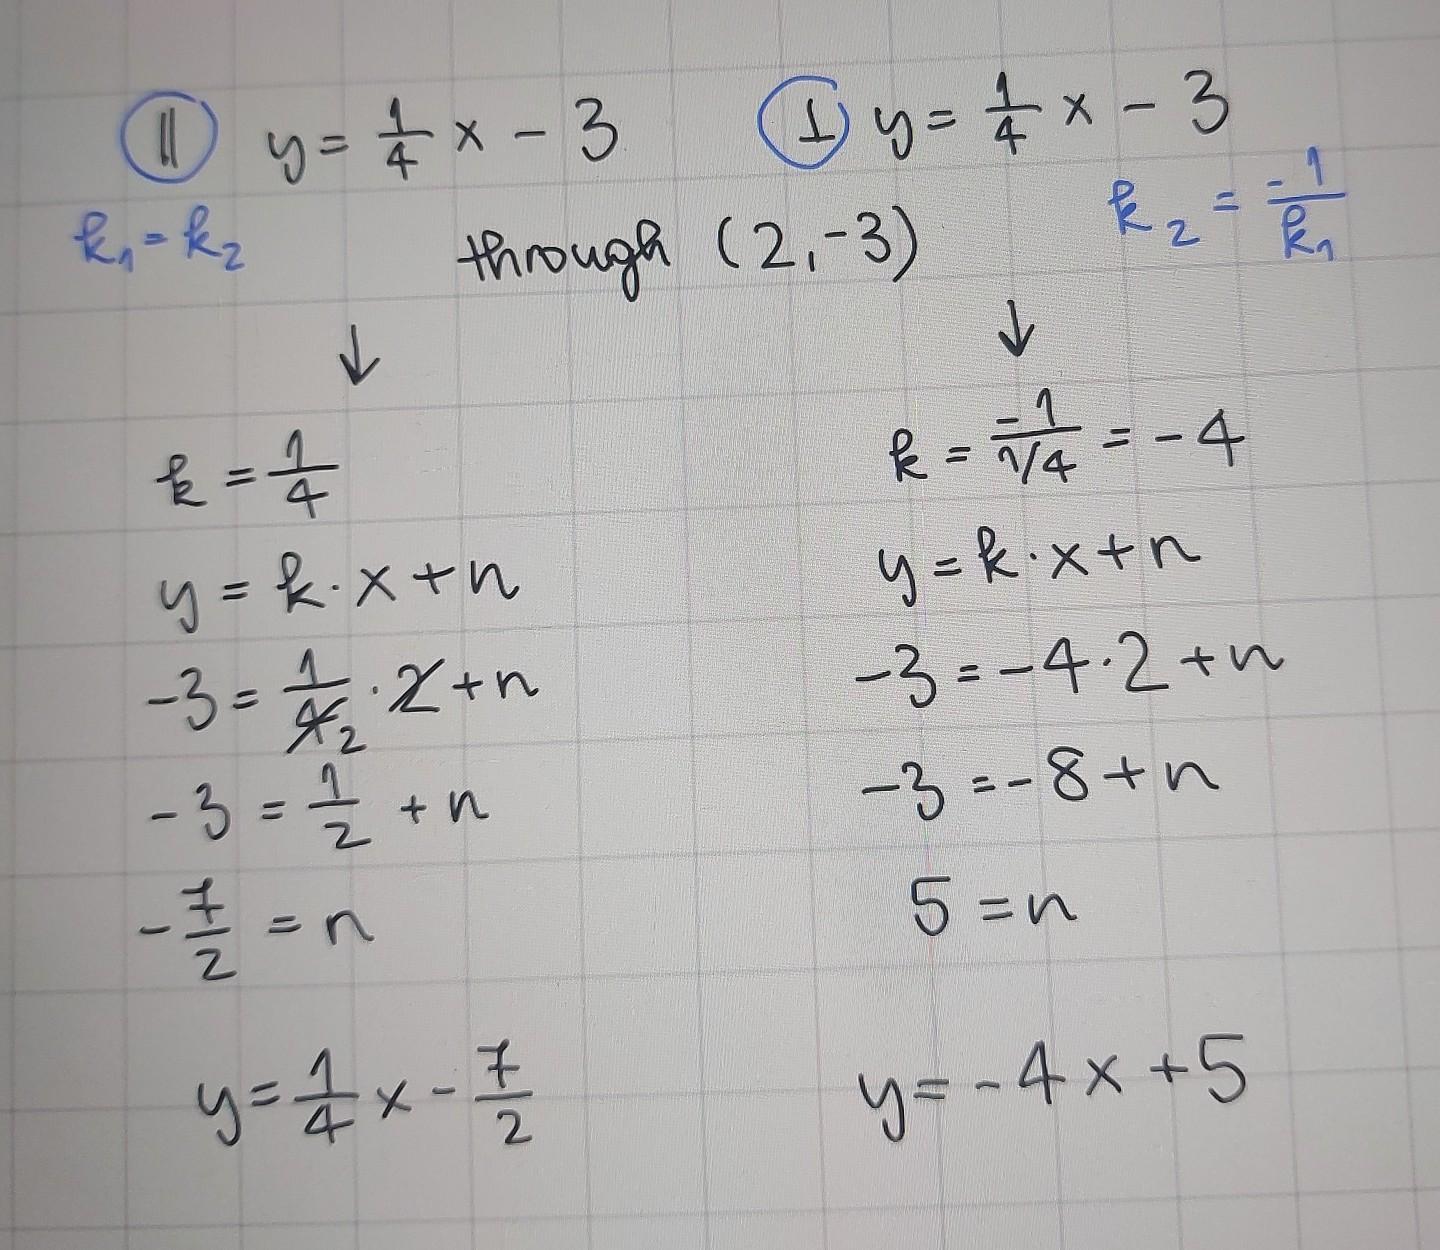 ∥ y = 1/4 x - 3
k₁ = k₂
⊥ y = 1/4 x - 3
k₂ = -1/k₁
through (2,-3)
↓
k = 1/4
y = k·x + n
-3 = 1/4₂ · 2 + n
-3 = 1/2 + n
-7/2 = n
y = 1/4 x - 7/2
↓
k = -1/(1/4) = -4
y = k·x + n
-3 = -4·2 + n
-3 = -8 + n
5 = n
y = -4x + 5